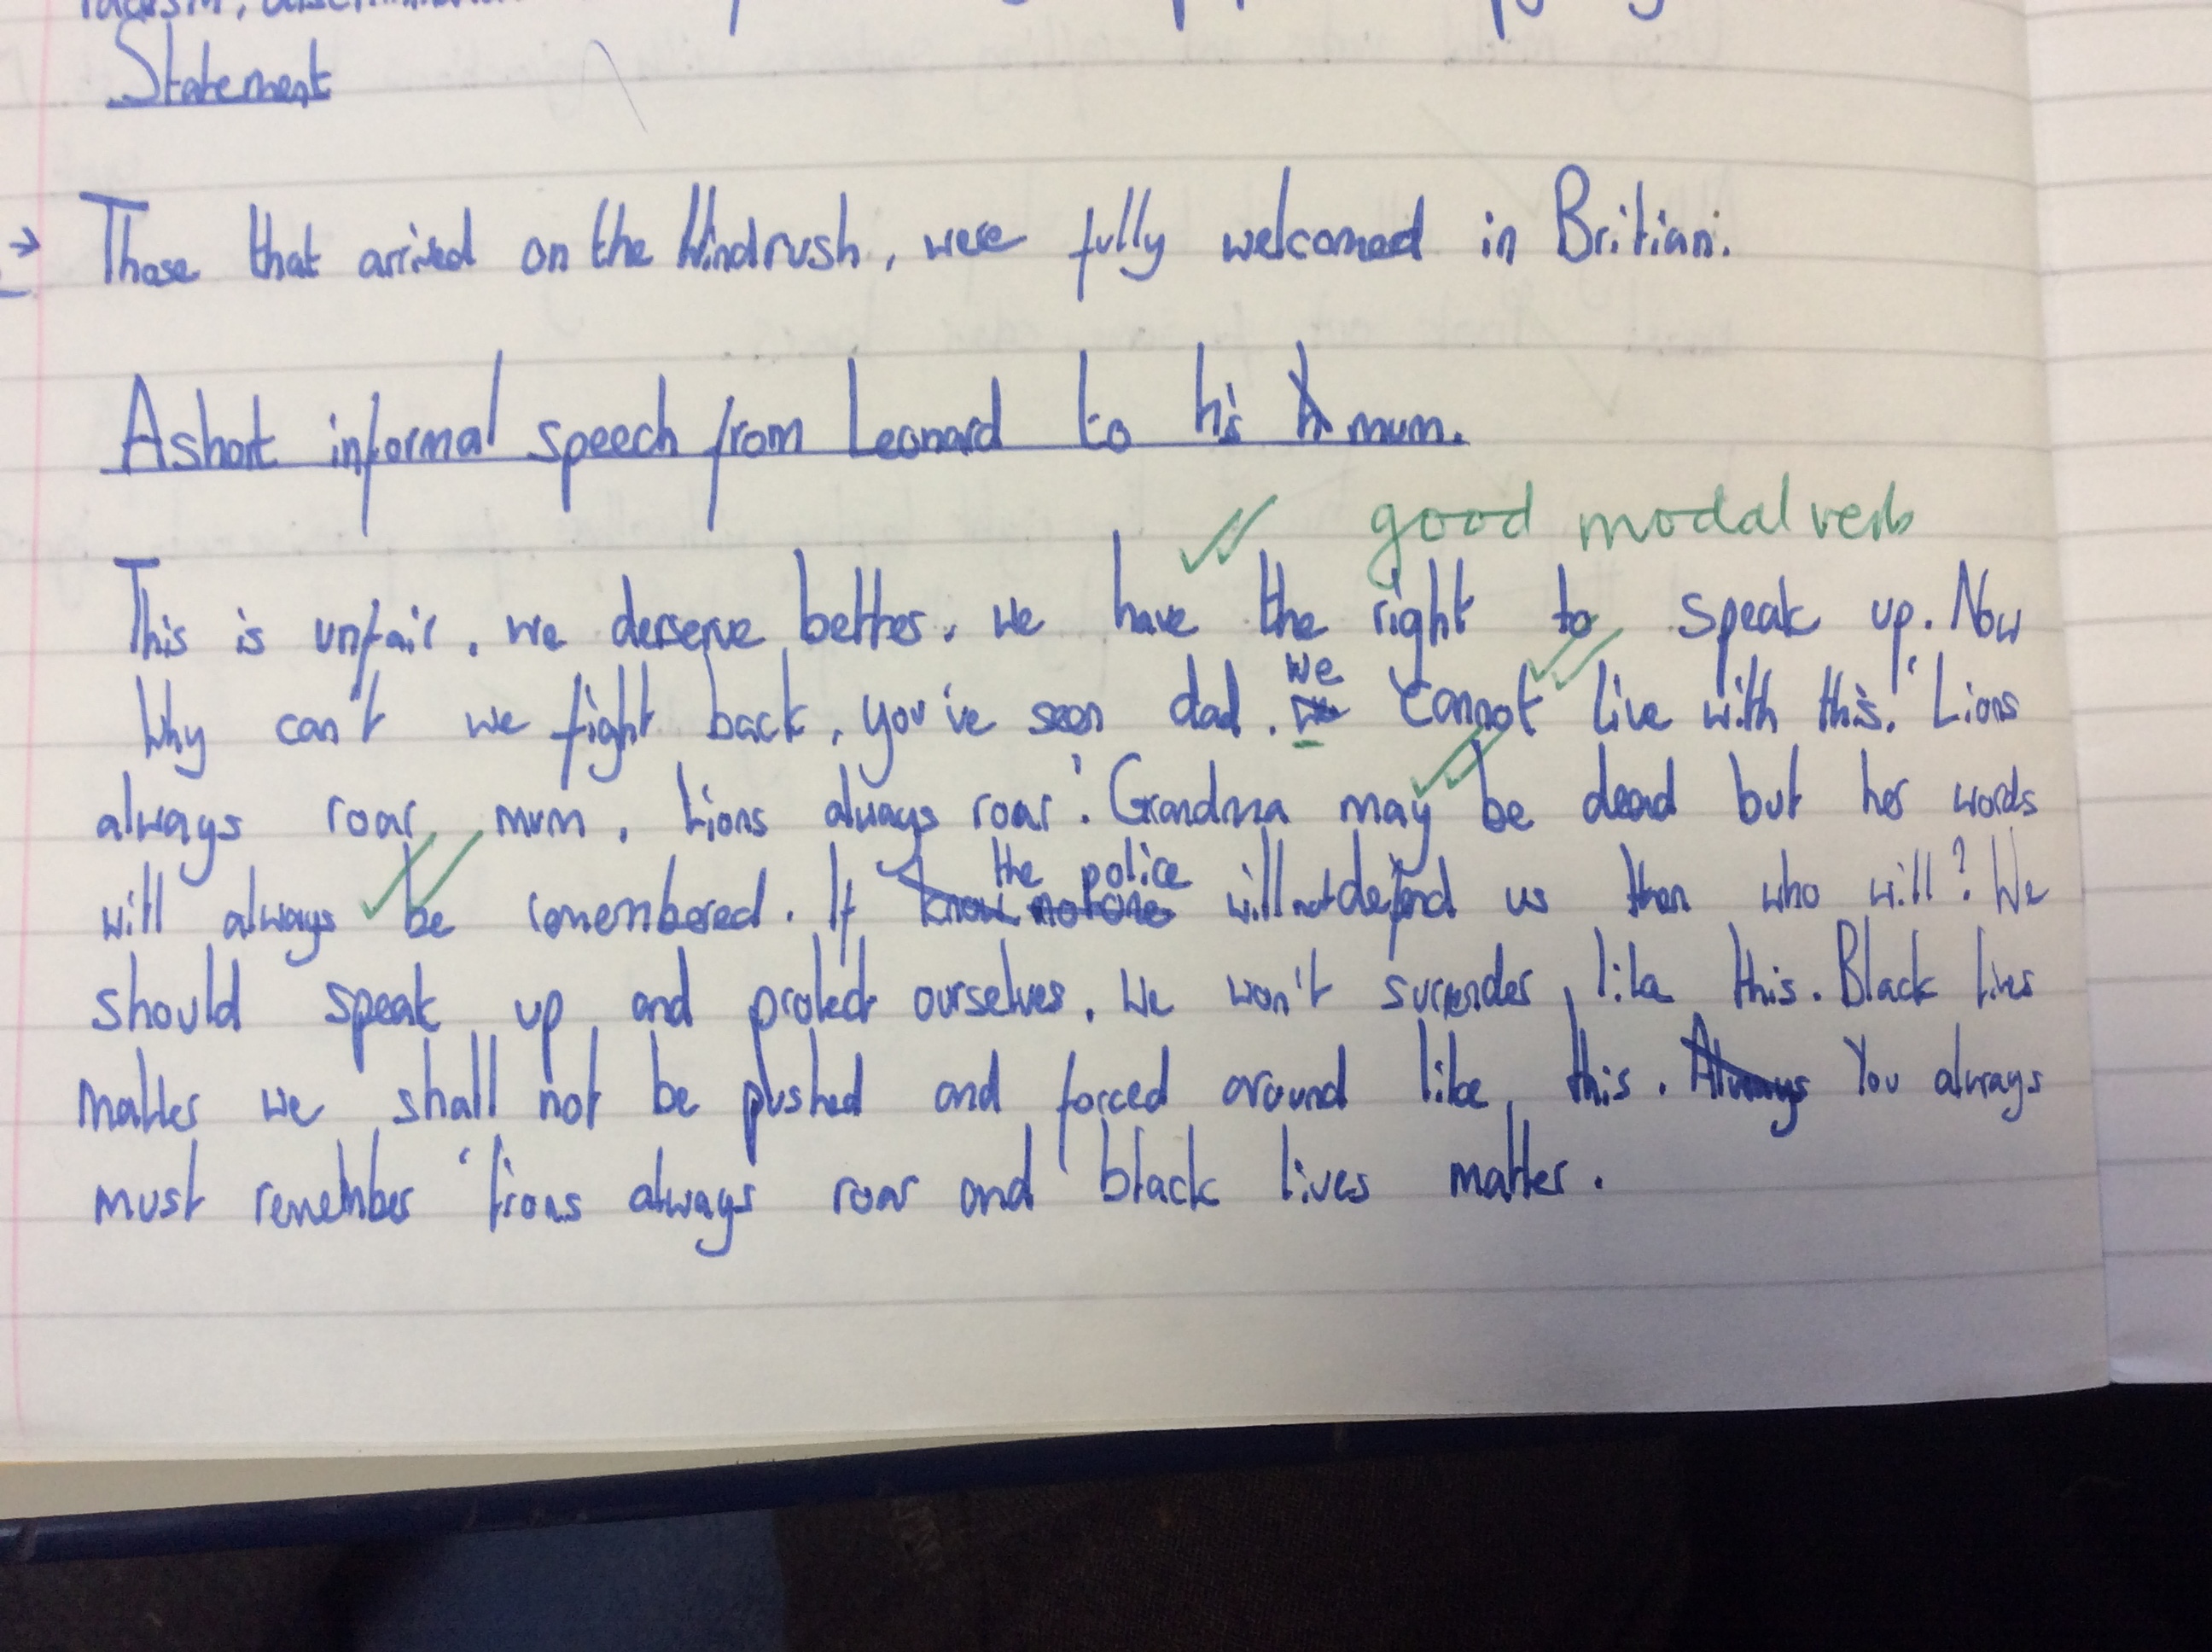 Statement
Those that arrived on the Windrush, were fully welcomed in Britian.
A short informal speech from Leonard to his mum.
good modal verb
This is unfair, we deserve better. We have the right to speak up. Now
Why can't we fight back, you've seen dad. we cannot live with this. 'Lions
always roar mum, Lions always roar'. Grandma may be dead but her words
will always be remembered. If the police will not defend us then who will? We
should speak up and protect ourselves. We won't surrender like this. Black lives
matter we shall not be pushed and forced around like this. Always You always
must remember 'lions always roar and black lives matter.